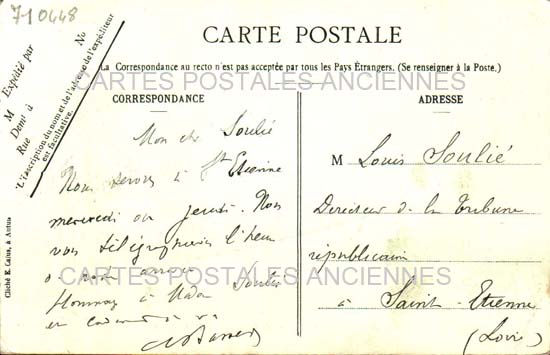 710448
CARTE POSTALE
La Correspondance au recto n'est pas acceptée par tous les Pays Étrangers. (Se renseigner à la Poste.)
M Expédié par
Demt à
Rue
No
L'inscription du nom et de l'adresse de l'expéditeur
est facultative.
CARTES POSTALES ANCIENNES
CORRESPONDANCE
Mon cher Soulié
Nous serons à St Etienne
mercredi ou jeudi. Nous
vous télégraphierons l'heure
Soulié
ADRESSE
M Louis Soulié
Directeur de la Tribune
républicaine
à Saint-Etienne
(Loire)
CARTES POSTALES ANCIENNES
Cliché E. Calus, à Autun